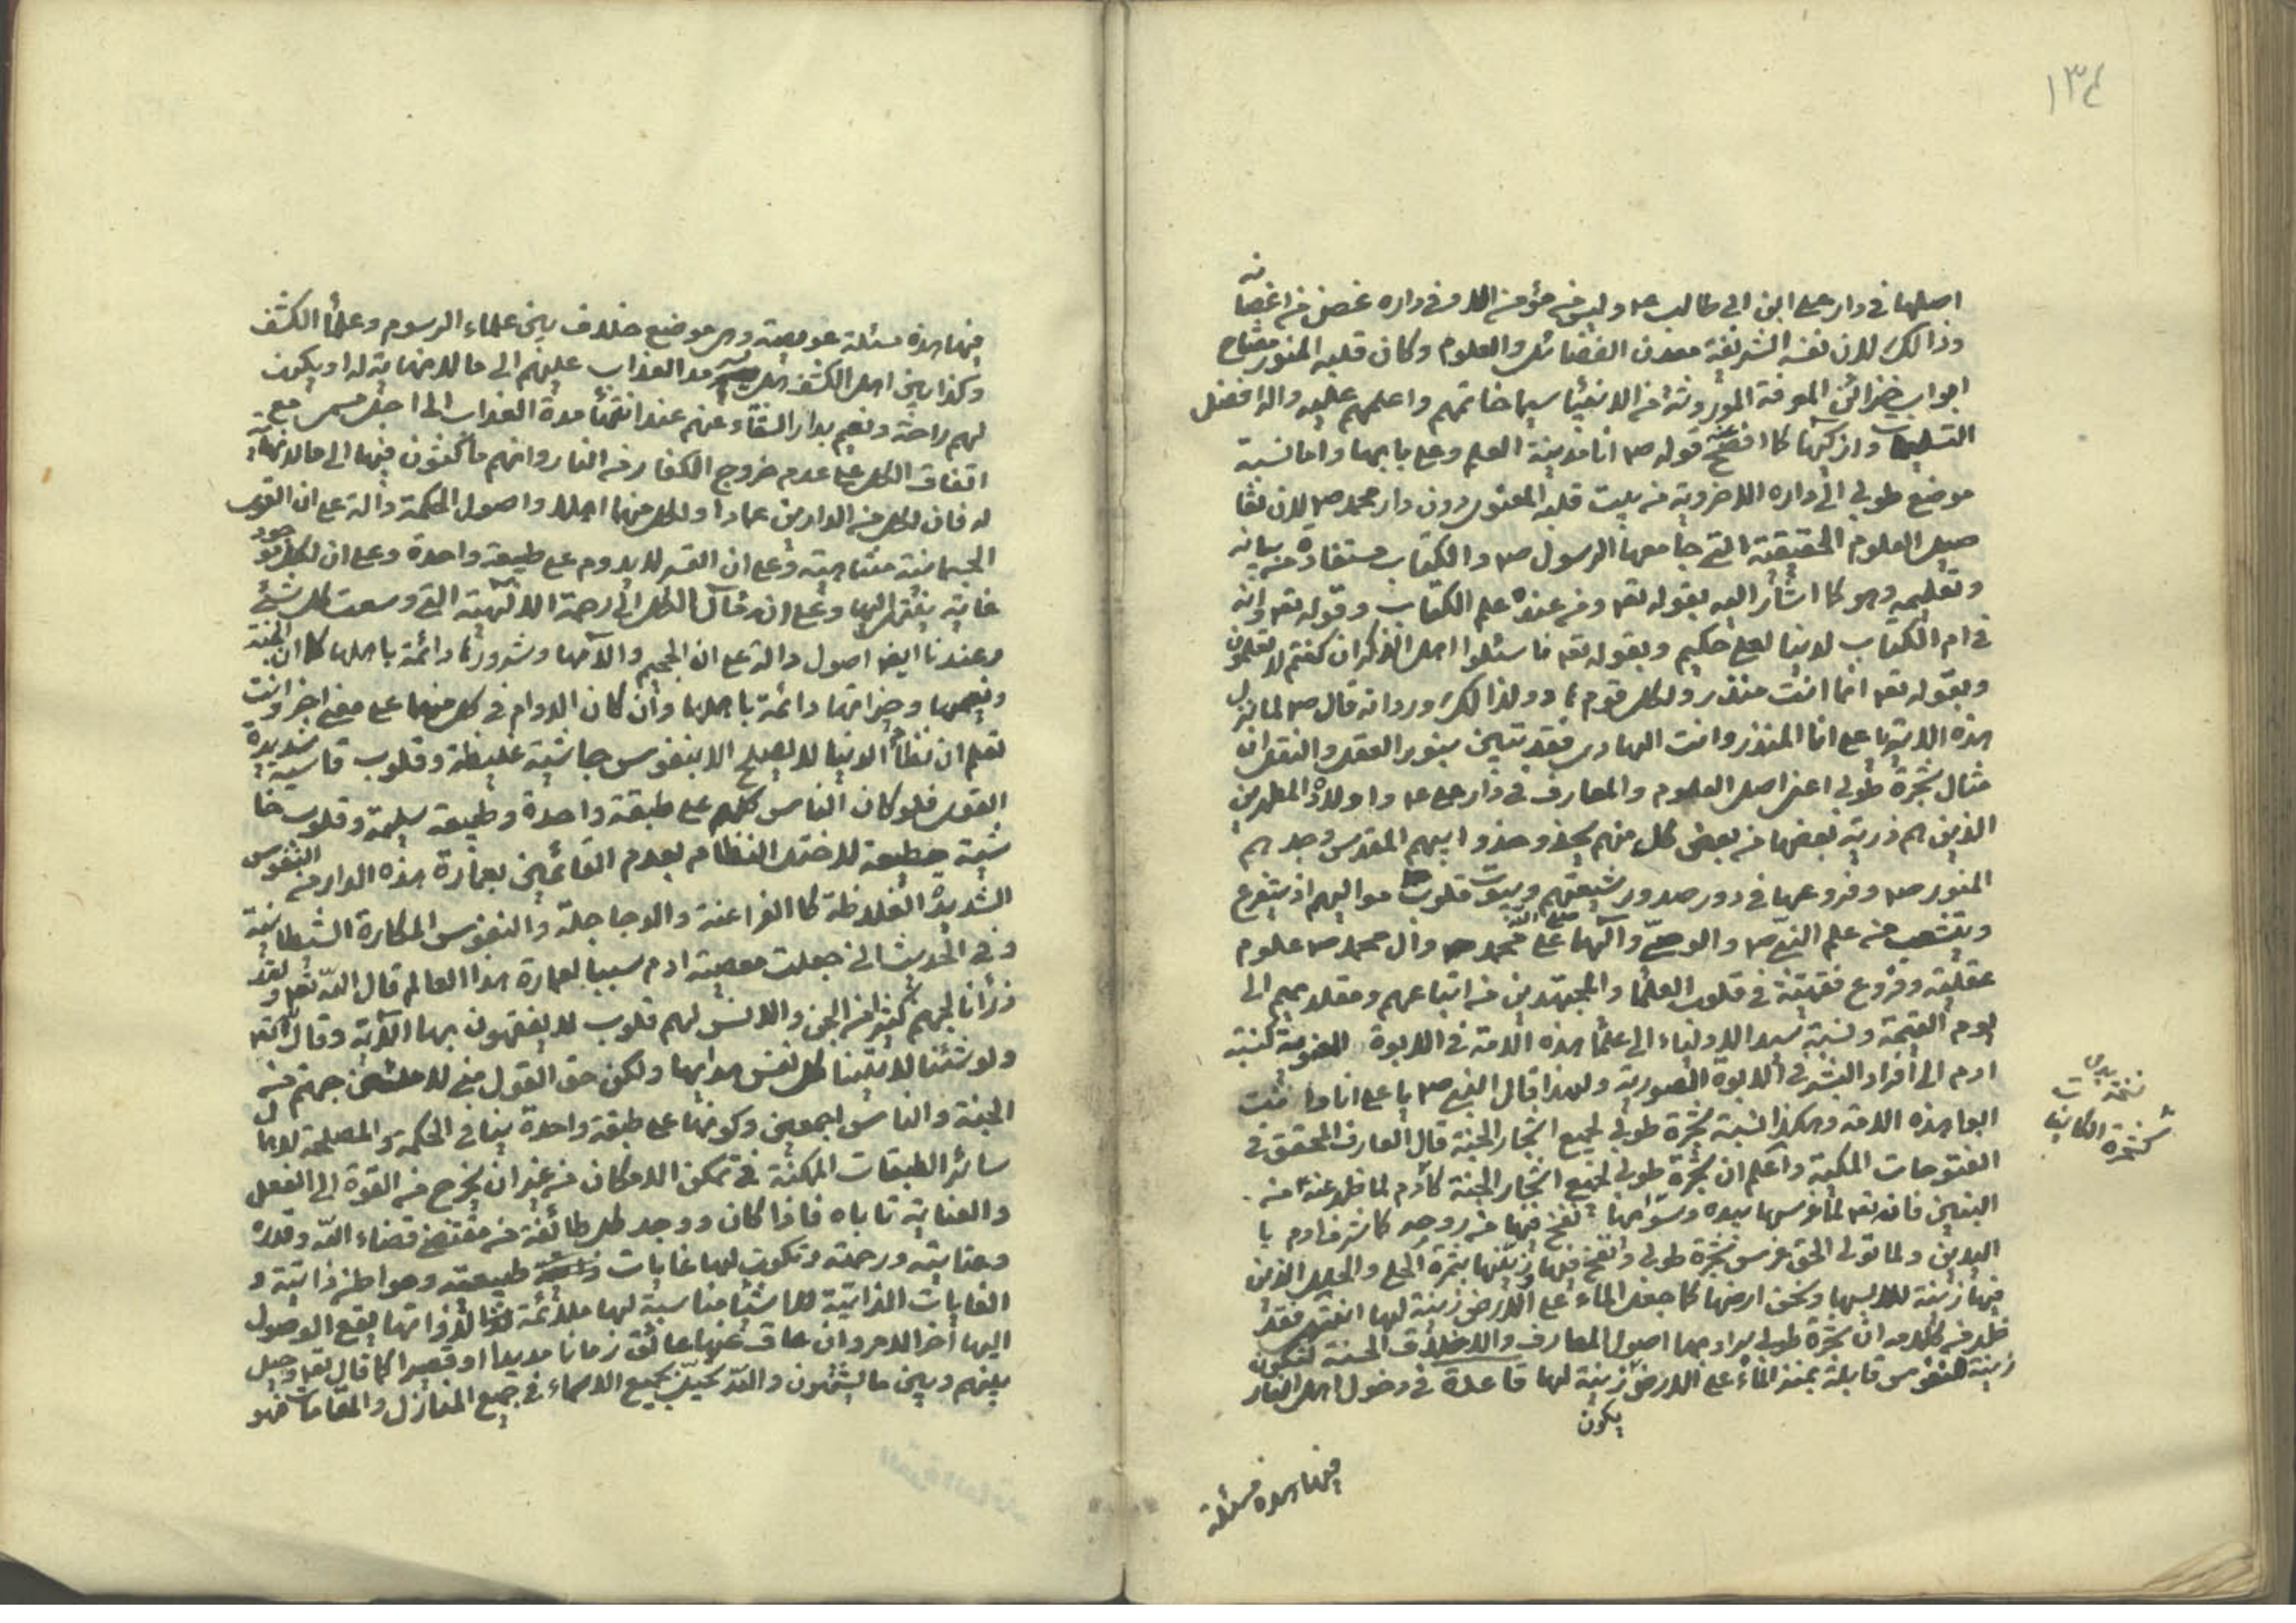 ١٣٤
اصلها في دار علي ابن ابي طالب ع م وليس من مؤمن الا و في داره غصن من اغصانه
وذالك لان نفسه الشريفة معدن الفضائل والعلوم وكان قلبه المنور مفتاح
ابواب خزائن المعرفة الموروثة من الانبياء سيما خاتمهم واعلمهم عليه واله افضل
التسليمات وازكيها كما افصح عنه قوله ص انا مدينة العلم وعلي بابها واما نسبة
موضع طوبى الى داره الاخروية من بيت قلبه المعنوي دون دار محمد ص لان تفا
صيل العلوم الحقيقية التي جامعها الرسول ص والكتاب مستفادة من بيانه
وتعليمه وهو كما اشار اليه بقوله تعه ومن عنده علم الكتاب وقوله تعه وانه
في ام الكتاب لدينا لعلي حكيم وبقوله تعه فاسئلوا اهل الذكر ان كنتم لا تعلمون
وبقوله تعه انما انت منذر ولكل قوم هاد ولذالك ورد انه قال ص لما نزل
هذه الاية يا علي انا المنذر وانت الهادي فقد تبين بنور العقل والنقل ان
مثال شجرة طوبى اعني اصل العلوم والمعارف في دار علي ع م واولاده المطهرين
الذين هم ذرية بعضها من بعض كل منهم يحذو حذو ابيهم المقدس وجدهم
المنور ص وفروعها في دور صدور شيعتهم وبيوت قلوب مواليهم اذ يتفرع
ويتشعب من علم النبي ص والوصي وآلهما على محمد ص وال محمد ص علوم
عقلية وفروع فقهية في قلوب العلماء والمجتهدين من اتباعهم ومقلديهم الى
يوم القيمة ونسبة سيد الاولياء الى علماء هذه الامة في الابوة المعنوية كنسبة
ادم الى أفراد البشر في الابوة الصورية ولهذا قال النبي ص يا علي انا وانت
ابوا هذه الامة وهكذا نسبة شجرة طوبى لجميع اشجار الجنة قال العارف المحقق في
الفتوحات المكية واعلم ان شجرة طوبى لجميع اشجار الجنة كآدم لما ظهر عنه من
البنين فان الله تعه لما غرسها بيده وسواها نفخ فيها من روحه كما شرف ادم با
اليدين ولما تولى الحق غرس شجرة طوبى ونفخ فيها زينها بثمرة الحلي والحلل الذين
فيها زينة للابسها ونحن ارضها كما جعل الماء على الارض زينة لها انتهى فقد
ظهر من كلامه ان شجرة طوبى يراد بها اصول المعارف والاخلاق الحسنة لتكون
زينة للنفوس قابلة بمنزلة الماء على الارض زينة لها قاعدة في دخول اهل النار
يكون
فيها هذه مسئلة
فيها هذه مسئلة عويصة وهي موضع خلاف بين علماء الرسوم وعلماء الكشف
وكذا بين اهل الكشف هل يسرمد العذاب عليهم الى ما لا نهاية له او يكون
لهم راحة ونعيم بدار الشقاء وعنهم عند انتهاء مدة العذاب الى اجل مسمى مع
اتفاق الكل على عدم خروج الكفار من النار وانهم ماكثون فيها الى ما لا نهاية
له فان لكل من الدارين عمارا ولكل منهما اهلا واصول الحكمة دالة على ان القوى
الجسمانية متناهية وعلى ان القسر لا يدوم على طبيعة واحدة وعلى ان لكل موجود
غاية ينتهي اليها وعلى ان مآل الكل الى رحمة الالهية التي وسعت كل شئ
وعندنا ايضا اصول دالة على ان الجحيم وآلامها وشرورها دائمة باهلها كما ان الجنة
ونعيمها وخيراتها دائمة باهلها وان كان الدوام في كل منهما على معنى اخر وانت
تعلم ان نظام الدنيا لا يصلح الا بنفوس جاسية غليظة وقلوب قاسية شديدة
القوى فلو كان الناس كلهم على طبقة واحدة وطبيعة سليمة وقلوب خا
شية مطيعة لاختل النظام بعدم القائمين بعمارة هذه الدار من النفوس
الشديدة الغلاظة كا الفراعنة والدجاجلة والنفوس المكارة الشيطانية
وفي الحديث اني جعلت معصية ادم سببا لعمارة هذا العالم قال الله تعه ولقد
ذرأنا لجهنم كثيرا من الجن والانس لهم قلوب لا يفقهون بها الآية وقال تعه
ولو شئنا لاتينا كل نفس هداها ولكن حق القول مني لاملئن جهنم من
الجنة والناس اجمعين وكونها على طبقة واحدة ينافي الحكمة والمصلحة لاهمال
سائر الطبقات الممكنة في ممكن الامكان من غير ان يخرج من القوة الى الفعل
والعناية تاباه فاذا كان وجود كل طائفة من مقتضى قضاء الله وقدره
وعنايته ورحمته وتكون لها غايات طبيعته ومواطن ذاتية و
الغايات الذاتية للاشياء مناسبة لها ملائمة لذواتها يقع الوصول
اليها اخر الامر وان عاق عنها عائق زمانا مديدا او قصيرا كما قال تعه وحيل
بينهم وبين ما يشتهون والله يحيل بجميع الاسماء في جميع المنازل والمقامات فهو